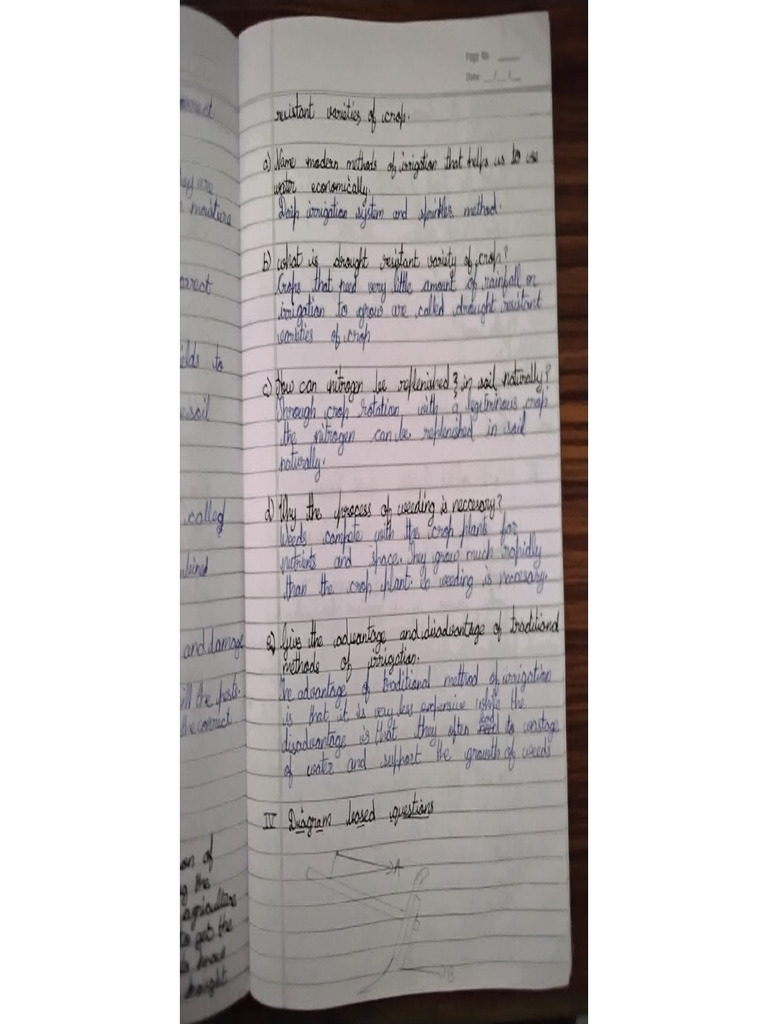 Page No
Date / /
orrect
ey are
moisture
orrect
elds to
soil
called
and damage
ill the pests.
the correct
on of
g the
agriculture
to get the
resistant varieties of crop.
a) Name modern methods of irrigation that helps us to use
water economically.
Drip irrigation system and sprinkler method.
b) what is drought resistant variety of crop?
Crops that need very little amount of rainfall or
irrigation to grow are called drought resistant
varities of crop
c) How can nitrogen be replenished in soil naturally?
Through crop rotation with a legiminous crop
the nitrogen can be replenished in soil
naturally.
d) Why the process of weeding is neccesary?
Weeds compete with the crop plants for
nutrients and space. They grow much rapidly
than the crop plant. So weeding is necessary.
e) Give the advantage and disadvantage of traditional
methods of irrigation.
The advantage of traditional method of irrigation
is that it is very less expensive while the
disadvantage is that they often lead to wastage
of water and support the growth of weeds
IV Diagram based questions
A
B